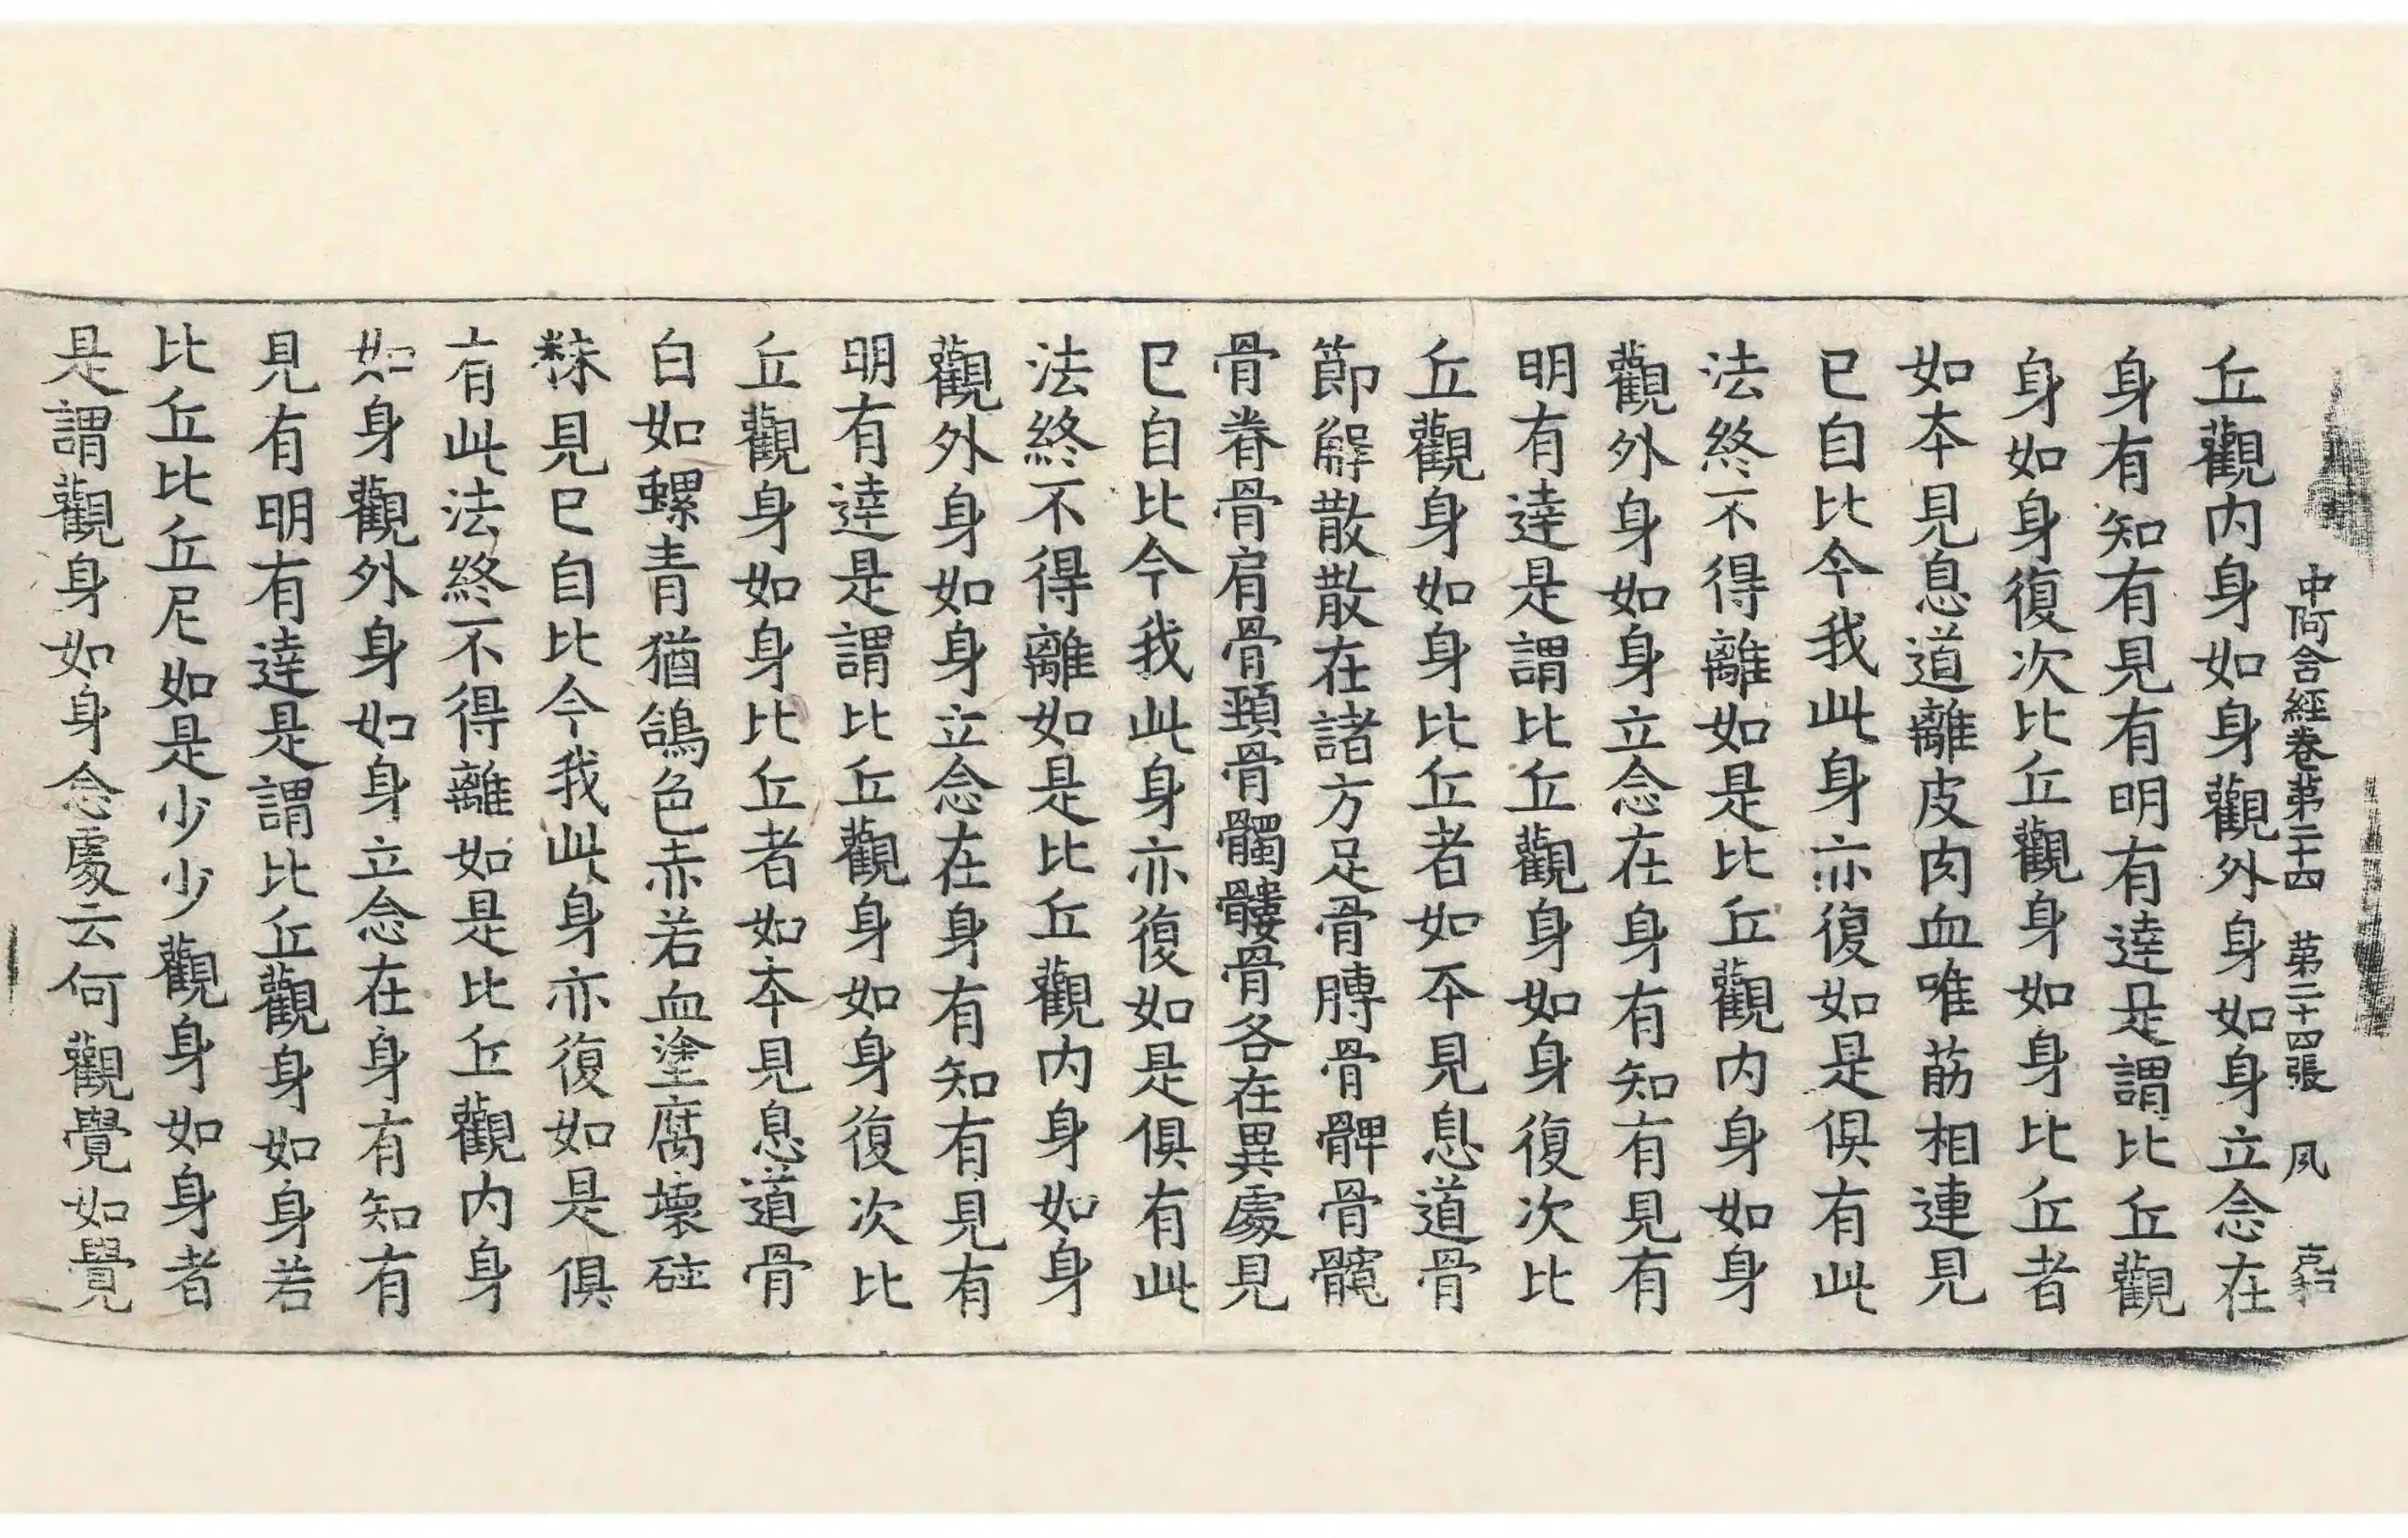 中阿含經卷第二十四　第二十四張　夙　嘉
丘觀内身如身觀外身如身立念在
身有知有見有明有達是謂比丘觀
身如身復次比丘觀身如身比丘者
如本見息道離皮肉血唯筋相連見
已自比今我此身亦復如是俱有此
法終不得離如是比丘觀内身如身
觀外身如身立念在身有知有見有
明有達是謂比丘觀身如身復次比
丘觀身如身比丘者如本見息道骨
節解散散在諸方足骨膊骨髀骨髖
骨脊骨肩骨頸骨髑髏骨各在異處見
已自比今我此身亦復如是俱有此
法終不得離如是比丘觀内身如身
觀外身如身立念在身有知有見有
明有達是謂比丘觀身如身復次比
丘觀身如身比丘者如本見息道骨
白如螺青猶鴿色赤若血塗腐壞碎
粖見已自比今我此身亦復如是俱
有此法終不得離如是比丘觀内身
如身觀外身如身立念在身有知有
見有明有達是謂比丘觀身如身若
比丘比丘尼如是少少觀身如身者
是謂觀身如身念處云何觀覺如覺